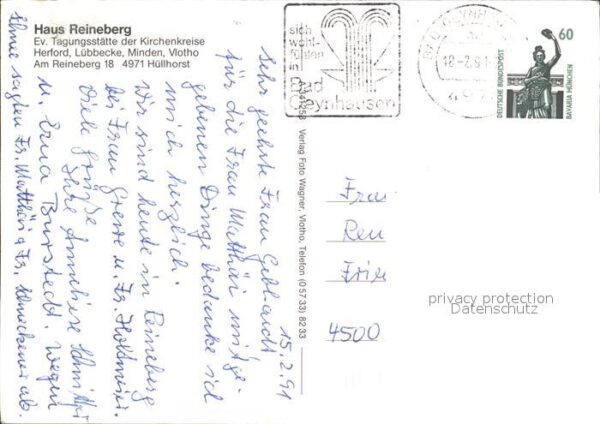 Haus Reineberg
Ev. Tagungsstätte der Kirchenkreise
Herford, Lübbecke, Minden, Vlotho
Am Reineberg 18 4971 Hüllhorst
sich
wohl-
fühlen
in
Bad
Oeynhausen
60
DEUTSCHE BUNDESPOST
BAVARIA MÜNCHEN
Verlag Foto Wagner, Vlotho, Telefon (0 57 33) 82 33
15.2.91
Sehr geehrte Frau Gebhardt
für die Frau Matthäi mitge-
gebenen Dinge bedanke ich
mich herzlich.
Wir sind heute in Reineberg
bei Frau Grewe u. Fr. Holtmeier.
Viele Grüße
Ihre Anneliese
u. Erna Burstedt. Wegen
sagten Fr. Matthäi u. Fr. ab.
Frau
Ren
Frie
4500
privacy protection
Datenschutz